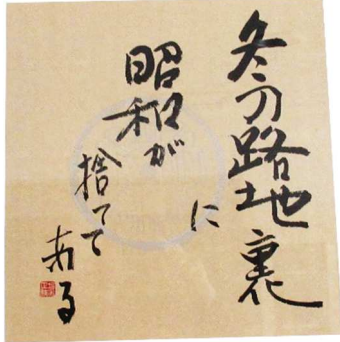 冬の路地裏
に
昭和が
捨てて
ある